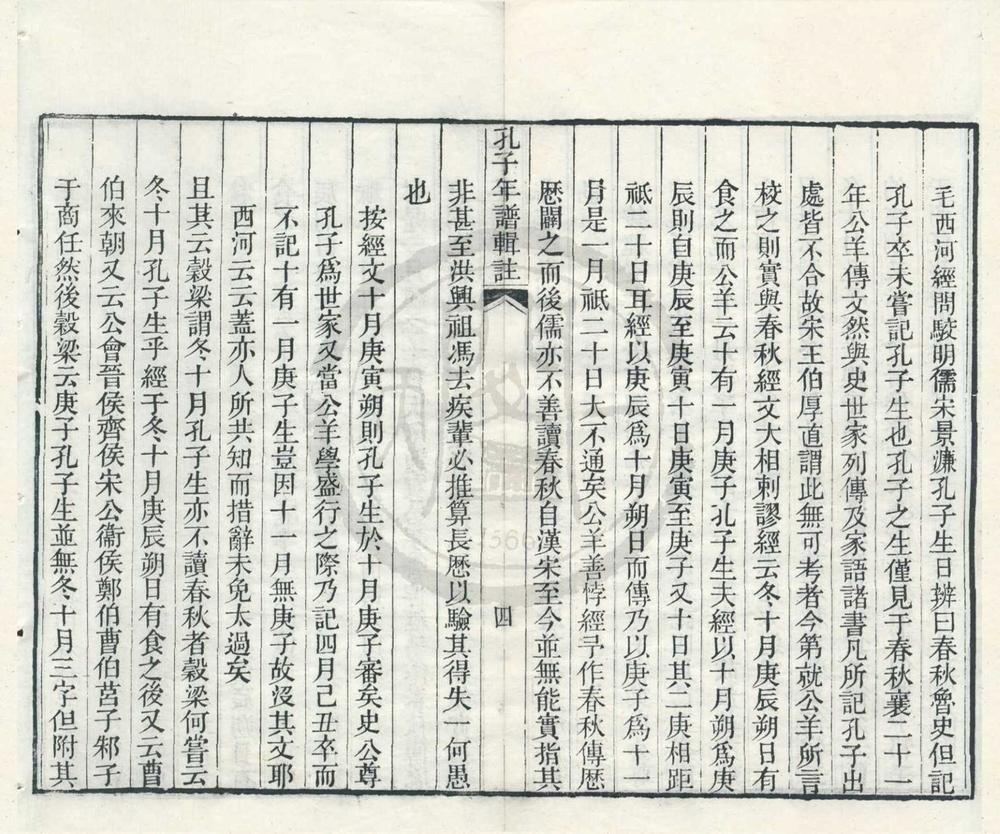 毛西河經問駮明儒宋景濂孔子生日辨曰春秋魯史但記
孔子卒未嘗記孔子生也孔子之生僅見于春秋襄二十一
年公羊傳文然與史世家列傳及家語諸書凡所記孔子出
處皆不合故宋王伯厚直謂此無可考者今第就公羊所言
校之則實與春秋經文大相刺謬經云冬十月庚辰朔日有
食之而公羊云十有一月庚子孔子生夫經以十月朔爲庚
辰則自庚辰至庚寅十日庚寅至庚子又十日其二庚相距
祇二十日耳經以庚辰爲十月朔日而傳乃以庚子爲十一
月是一月祇二十日大不通矣公羊善悖經予作春秋傳歷
歷闢之而後儒亦不善讀春秋自漢宋至今並無能實指其
非甚至洪興祖馮去疾輩必推算長歷以驗其得失一何愚
也
孔子年譜輯註
四
按經文十月庚寅朔則孔子生於十月庚子審矣史公尊
孔子爲世家又當公羊學盛行之際乃記四月己丑卒而
不記十有一月庚子生豈因十一月無庚子故沒其文耶
西河云云蓋亦人所共知而措辭未免太過矣
且其云穀梁謂冬十月孔子生亦不讀春秋者穀梁何嘗云
冬十月孔子生乎經于冬十月庚辰朔日有食之後又云曹
伯來朝又云公會晉侯齊侯宋公衞侯鄭伯曹伯莒子邾子
于商任然後穀梁云庚子孔子生並無冬十月三字但附其